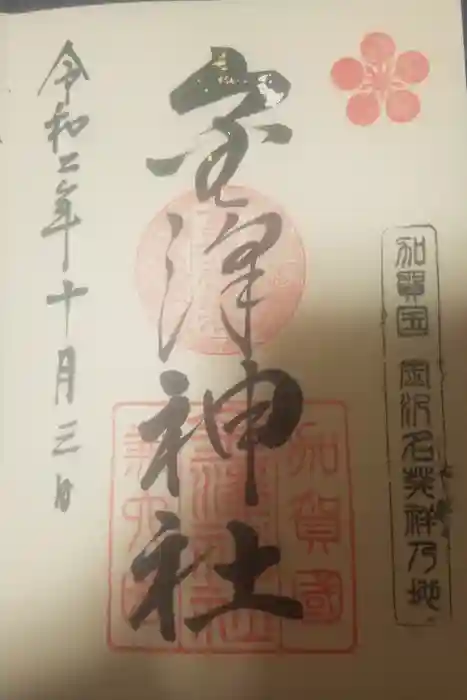 加賀国 金沢名発祥乃地
金澤神社
加賀國
令和二年十月三日